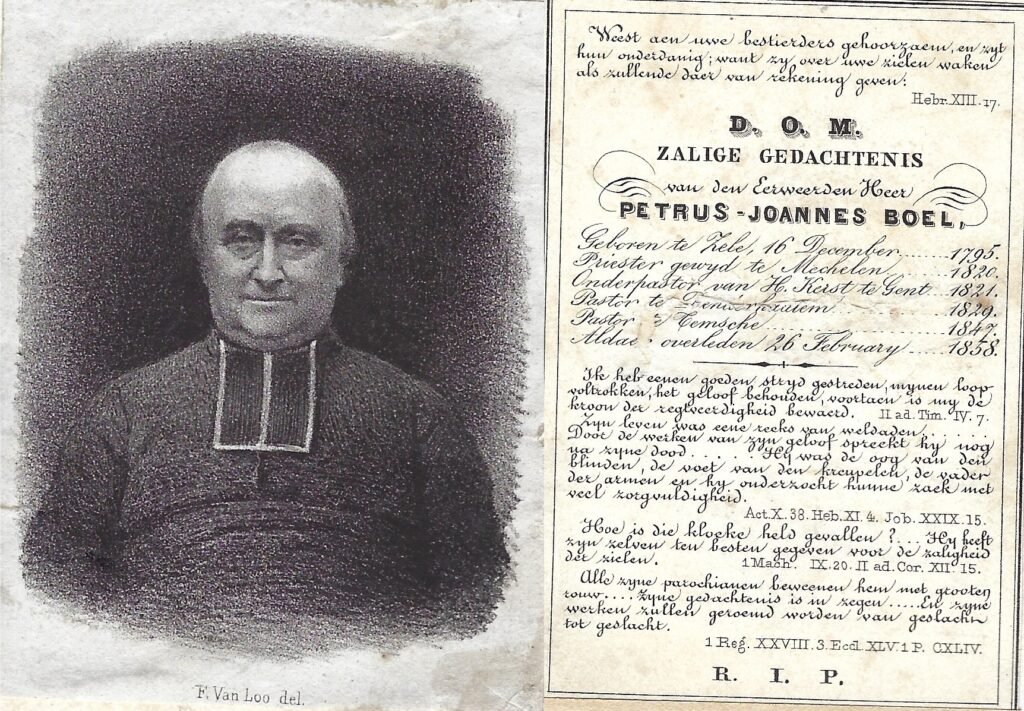 F. Van Loo del.
Weest aen uwe bestierders gehoorzaem, en zyt
hun onderdanig; want zy over uwe zielen waken
als zullende daer van rekening geven:
Hebr. XIII. 17.
D. O. M.
ZALIGE GEDACHTENIS
van den Eerweerden Heer
PETRUS-JOANNES BOEL,
Geboren te Zele, 16 December ........ 1795.
Priester gewyd te Mechelen ........ 1820.
Onderpastor van H. Kerst te Gent ... 1821.
Pastor te ........ 1829.
Pastor te Temsche ........ 1847.
Aldaer overleden 26 February ..... 1858.
Ik heb eenen goeden stryd gestreden, mynen loop
voltrokken, het geloof behouden, voortaen is my de
kroon der regtveerdigheid bewaerd. II ad. Tim. IV. 7.
Zyn leven was eene reeks van weldaden. .....
Door de werken van zyn geloof spreekt hy nog
na zyne dood ........ Hy was de oog van den
blinden, de voet van den kreupelen, de vader
der armen en hy onderzocht hunne zaek met
veel zorgvuldigheid.
Act. X. 38. Heb. XI. 4. Job. XXIX. 15.
Hoe is die kloeke held gevallen ?... Hy heeft
zyn zelven ten besten gegeven voor de zaligheid
der zielen. 1 Mach. IX. 20. II ad. Cor. XII. 15.
Alle zyne parochianen beweenen hem met grooten
rouw.... Zyne gedachtenis is in zegen ..... En zyne
werken zullen geroemd worden van geslacht
tot geslacht.
1 Reg. XXVIII. 3. Eccl. XLV. 1 P. CXLIV.
R. I. P.